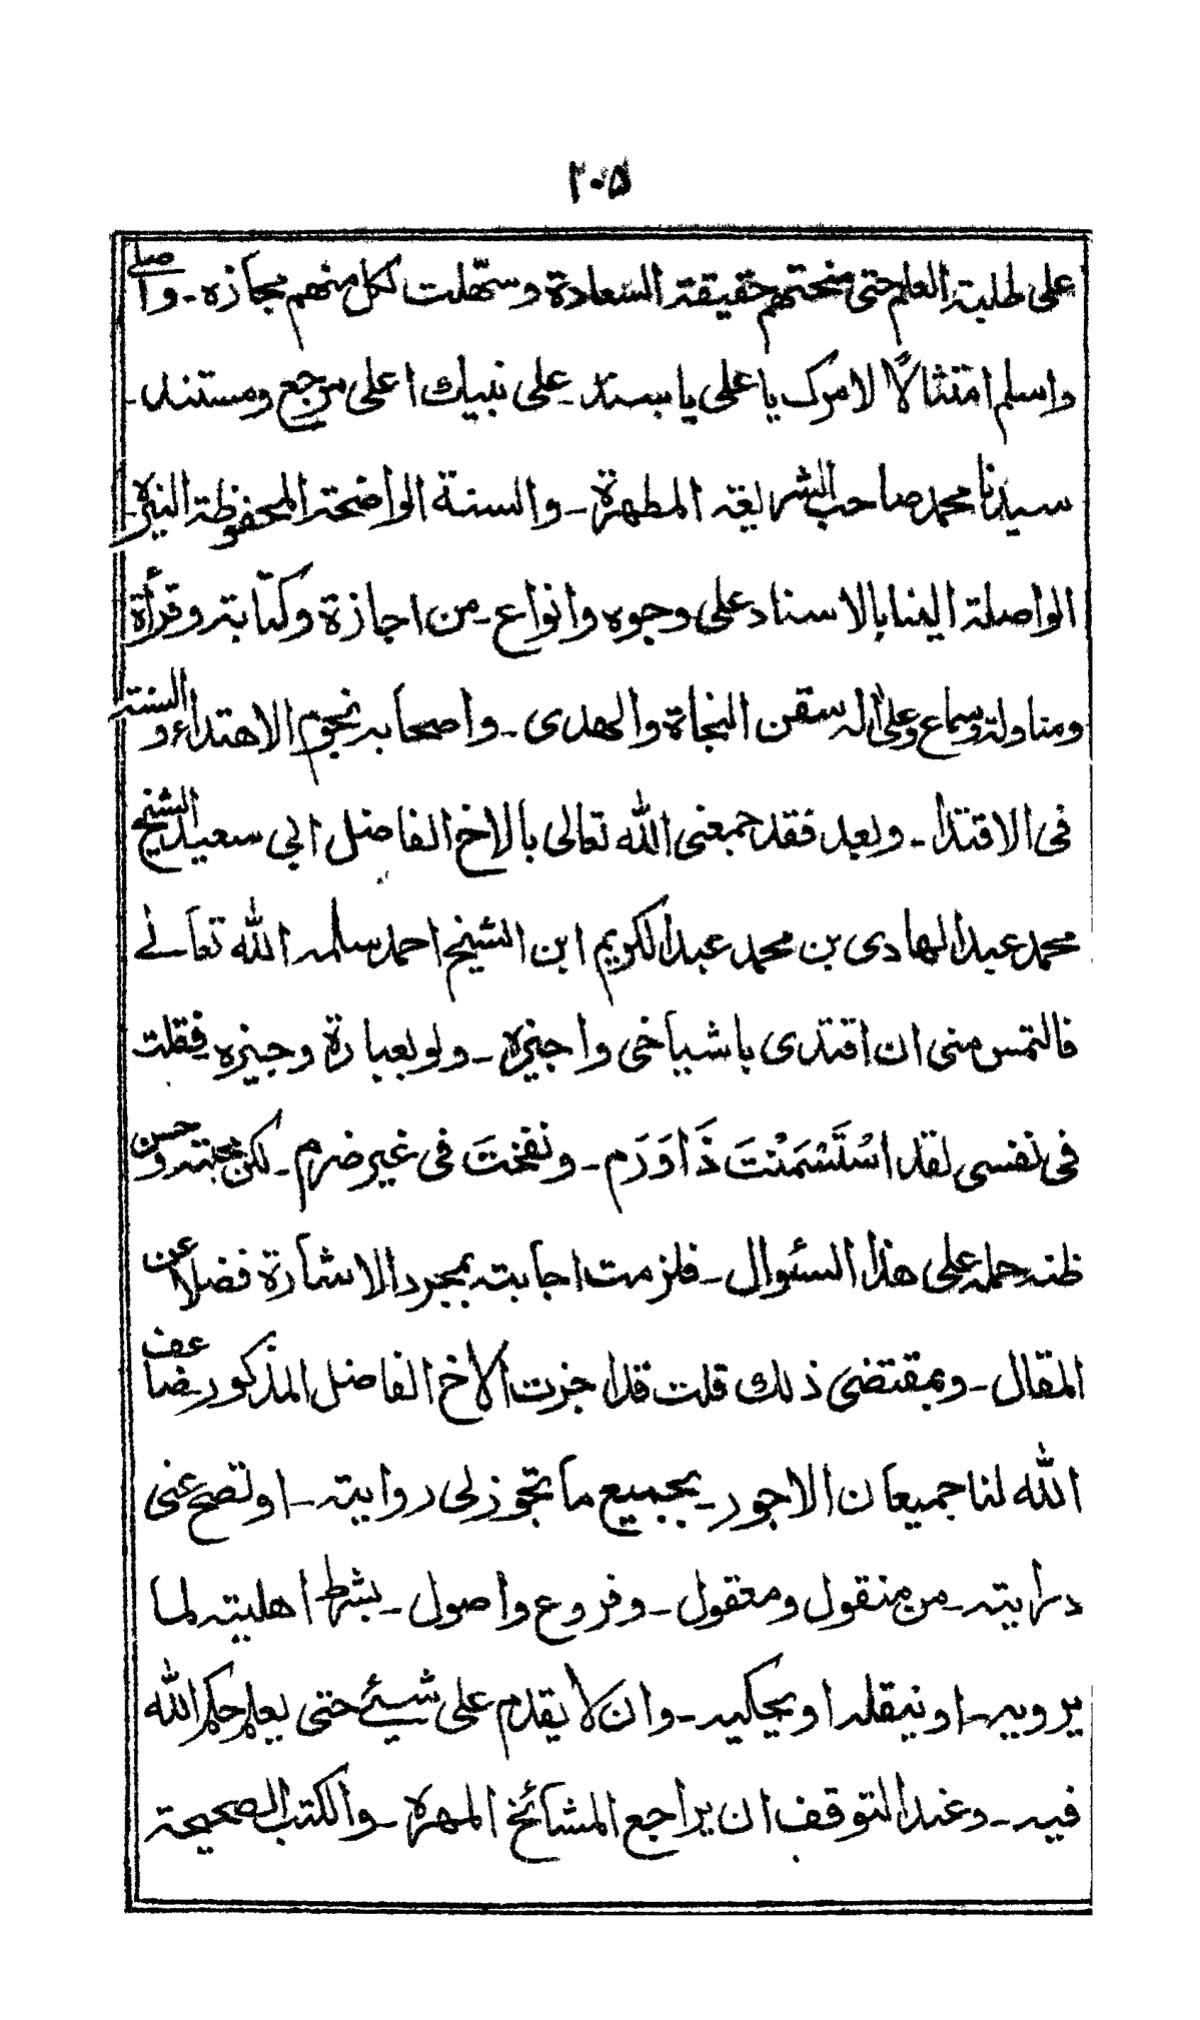 ٢٠٥
على طلبة العلم حتى منحتهم حقيقة السعادة وسهلت لكل منهم مجازه ـ واصلى
واسلم امتثالًا لامرك يا على يا سند ـ على نبيك اعلى مرجع ومستند ـ
سيدنا محمد صاحب الشريعة المطهرة ـ والسنة الواضحة المحفوظة النيرة ـ
الواصلة الينا بالاسناد على وجوه وانواع ـ من اجازة وكتابة وقرأة
ومناولة وسماع وعلى اله سفن النجاة والهدى ـ واصحابه نجوم الاهتداء والسنة
فى الاقتدا ـ وبعد فقد جمعنى الله تعالى بالاخ الفاضل ابي سعيد الشيخ
محمد عبد الهادى بن محمد عبد الكريم ابن الشيخ احمد سلمه الله تعالے
فالتمس منى ان اقتدى باشياخى واجيزه ـ ولو بعبارة وجيزه فقلت
فى نفسى لقد اسْتَسْمَنْتَ ذَا وَرَم ـ ونفختَ فى غير ضرم ـ لكن محبته وحسن
ظنه حمله على هذا السئوال ـ فلزمت اجابته بمجرد الاشارة فضلا عن
المقال ـ وبمقتضى ذلك قلت قد اجزت الاخ الفاضل المذكور ضاعف
الله لنا جميعا ن الاجور ـ بجميع ما تجوز لى روايته ـ او تصح عنى
درايته ـ من منقول ومعقول ـ وفروع واصول ـ بشرط اهليته لما
يرويه ـ او ينقله او يحكيه ـ وان لا يقدم على شيئ حتى يعلم حكم الله
فيه ـ وعند التوقف ان يراجع المشائخ المهره ـ والكتب الصحيحة